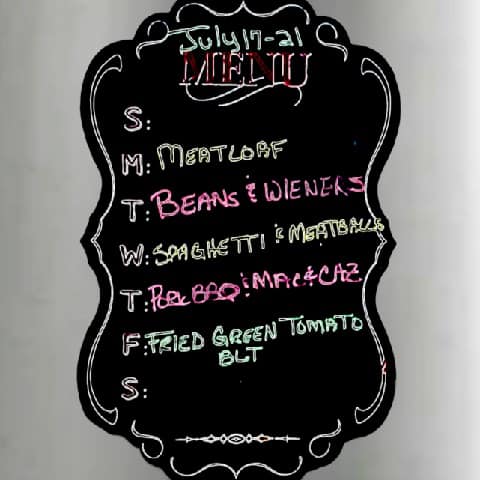 July 17-21
MENU
S:
M: MEATLOAF
T: BEANS & WIENERS
W: SPAGHETTI & MEATBALLS
T: PORK BBQ & MAC & CHZ
F: FRIED GREEN TOMATO
BLT
S: